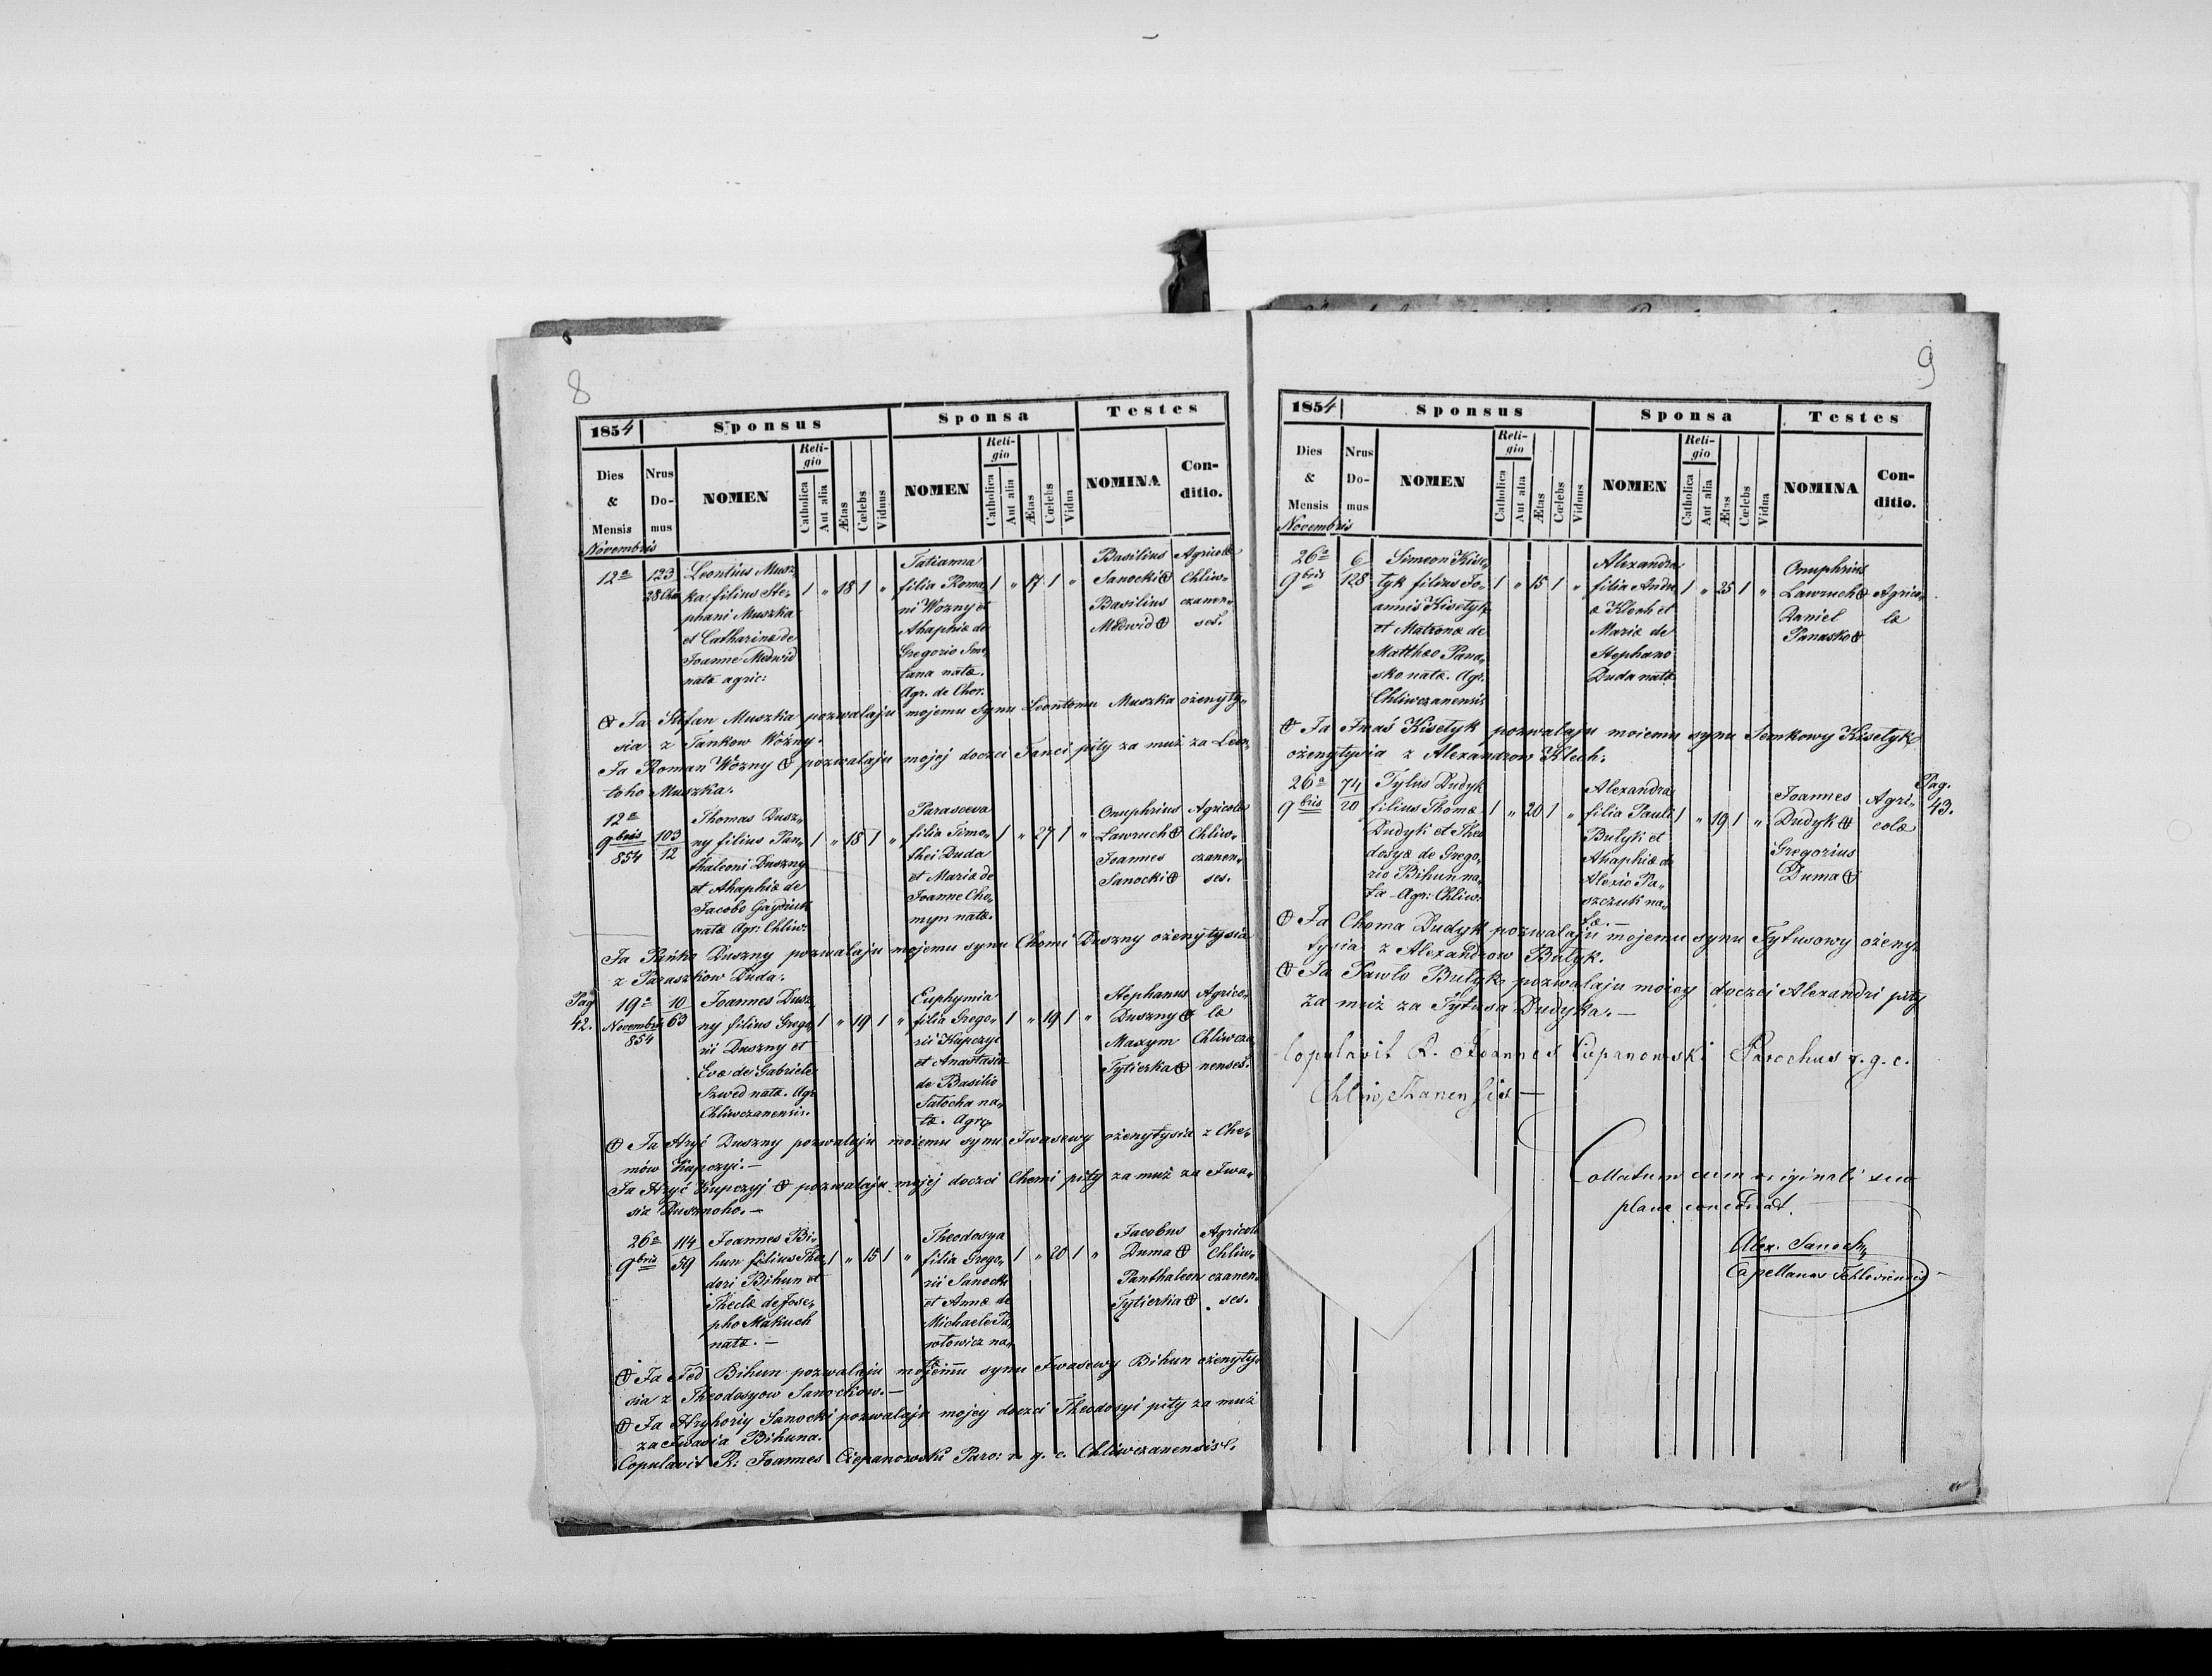 8
1854 Sponsus Sponsa Testes
Dies & Mensis Nrus Domus NOMEN Religio Catholica Aut alia Ætas Cœlebs Viduus NOMEN Religio Catholica Aut alia Ætas Cœlebs Vidua NOMINA Conditio.
Novembris
12a
123
28 Cho
Leontius Musz-
ka filius Ste-
phani Muszka
et Catharinæ de
Joanne Medwid
natæ agric:
1 " 18 1 "
Tatianna
filia Roma-
ni Wozny et
Ahaphiæ de
Gregorio Sme-
tana natæ.
Agr. de Chor.
1 " 17 1 "
Basilius
Sanocki
Basilius
Medwid
Agricolæ
Chliw-
czanen-
ses.
Ja Stefan Muszka pozwalaju mojemu synu Leontomu Muszka ożenyty-
sia z Tankow Woźny.
Ja Roman Wozny pozwalaju mojej doczci Tanci pity za muż za Leon-
toho Muszka.
12a
9bris
854
103
12
Thomas Dusz-
ny filius Pan-
thaleoni Duszny
et Ahaphiæ de
Jacobo Gayduk
natæ Agr: Chliw:
1 " 18 1 "
Parasceva
filia Timo-
thei Duda
et Mariæ de
Joanne Cho-
myn natæ.
1 " 27 1 "
Onuphrius
Lawruch
Joannes
Sanocki
Agricolæ
Chliw-
czanen-
ses.
Ja Pańko Duszny pozwalaju mojemu synu Chomi Duszny ożenytysia
z Paraszkow Duda.
Pag
42.
19a
Novembris
854
10
63
Joannes Dusz-
ny filius Grego-
rii Duszny et
Evæ de Gabriele
Szwed natæ. Agr
Chliwczanensis.
1 " 19 1 "
Euphymia
filia Grego-
rii Kupczyj
et Anastasiæ
de Basilio
Satocha na-
tæ. Agr.
1 " 19 1 "
Stephanus
Duszny
Maxym
Tytierka
Agrico-
læ
Chliwcza-
nenses.
Ja Hryć Duszny pozwalaju moiemu synu Iwasewy ożenytysia z Che-
mów Kupczyj.
Ja Hryć Kupczyj pozwalaju mojej doczci Chemi pity za muż za Iwa-
sia Dusznoho.
26a
9bris
114
59
Joannes Bi-
hun filius Theo-
dori Bihun et
Theclæ de Jose-
pho Makuch
natæ.
1 " 15 1 "
Theodosya
filia Grego-
rii Sanocki
et Annæ de
na-
tæ
1 " 20 1 "
Jacobus
Duma
Panthaleon
Tytierka
Agricolæ
Chliw-
czanen-
ses.
Ja Fed Bihun pozwalaju mojemu synu Iwasewy Bihun ożenyty-
sia z Theodosyow Sanockow.
Ja Hryhoriy Sanocki pozwalaju mojey doczci Theodosyi pity za muż
za Iwasia Bihuna.
Copulavit R: Joannes Ciepanowski Paro: r. g. c. Chliwczanensis.
9
1854 Sponsus Sponsa Testes
Dies & Mensis Nrus Domus NOMEN Religio Catholica Aut alia Ætas Cœlebs Viduus NOMEN Religio Catholica Aut alia Ætas Cœlebs Vidua NOMINA Conditio.
Novembris
26a
9bris
6
128
Simeon Kise-
tyk filius Jo-
annis Kisetyk
et Matronæ de
Matthæo Pana-
sko natæ. Agr.
Chliwczanensis
1 " 15 1 "
Alexandra
filia Andre-
æ Klech et
Mariæ de
Stephano
Duda natæ
1 " 25 1 "
Onuphrius
Lawruch
Daniel
Panasko
Agrico-
læ
Ja Iwaś Kisetyk pozwalaju moiemu synu Semkowy Kisetyk
ożenytysia z Alexandrow Klech.
26a
9bris
74
20
Tytus Dudyk
filius Thomæ
Dudyk et Theo-
dosyæ de Grego-
rio Bihun na-
ta Agr: Chliw:
1 " 20 1 "
Alexandra
filia Pauli
Butyk et
Ahaphiæ de
Alexio Pa-
szczuk na-
tæ.
1 " 19 1 "
Joannes
Dudyk
Gregorius
Duma
Agri-
colæ
Pag.
43.
Ja Choma Dudyk pozwalaju mojemu synu Tytusowy ożeny-
tysia z Alexandrow Butyk.
Ja Pawło Butyk pozwalaju mojey doczci Alexandri pity
za muż za Tytusa Dudyka.
Copulavit R. Joannes Ciepanowski Parochus r. g. c.
Chliwczanensis
Collatum cum originali suo
plane concordat.
Alex. Sanocki
Capellanus